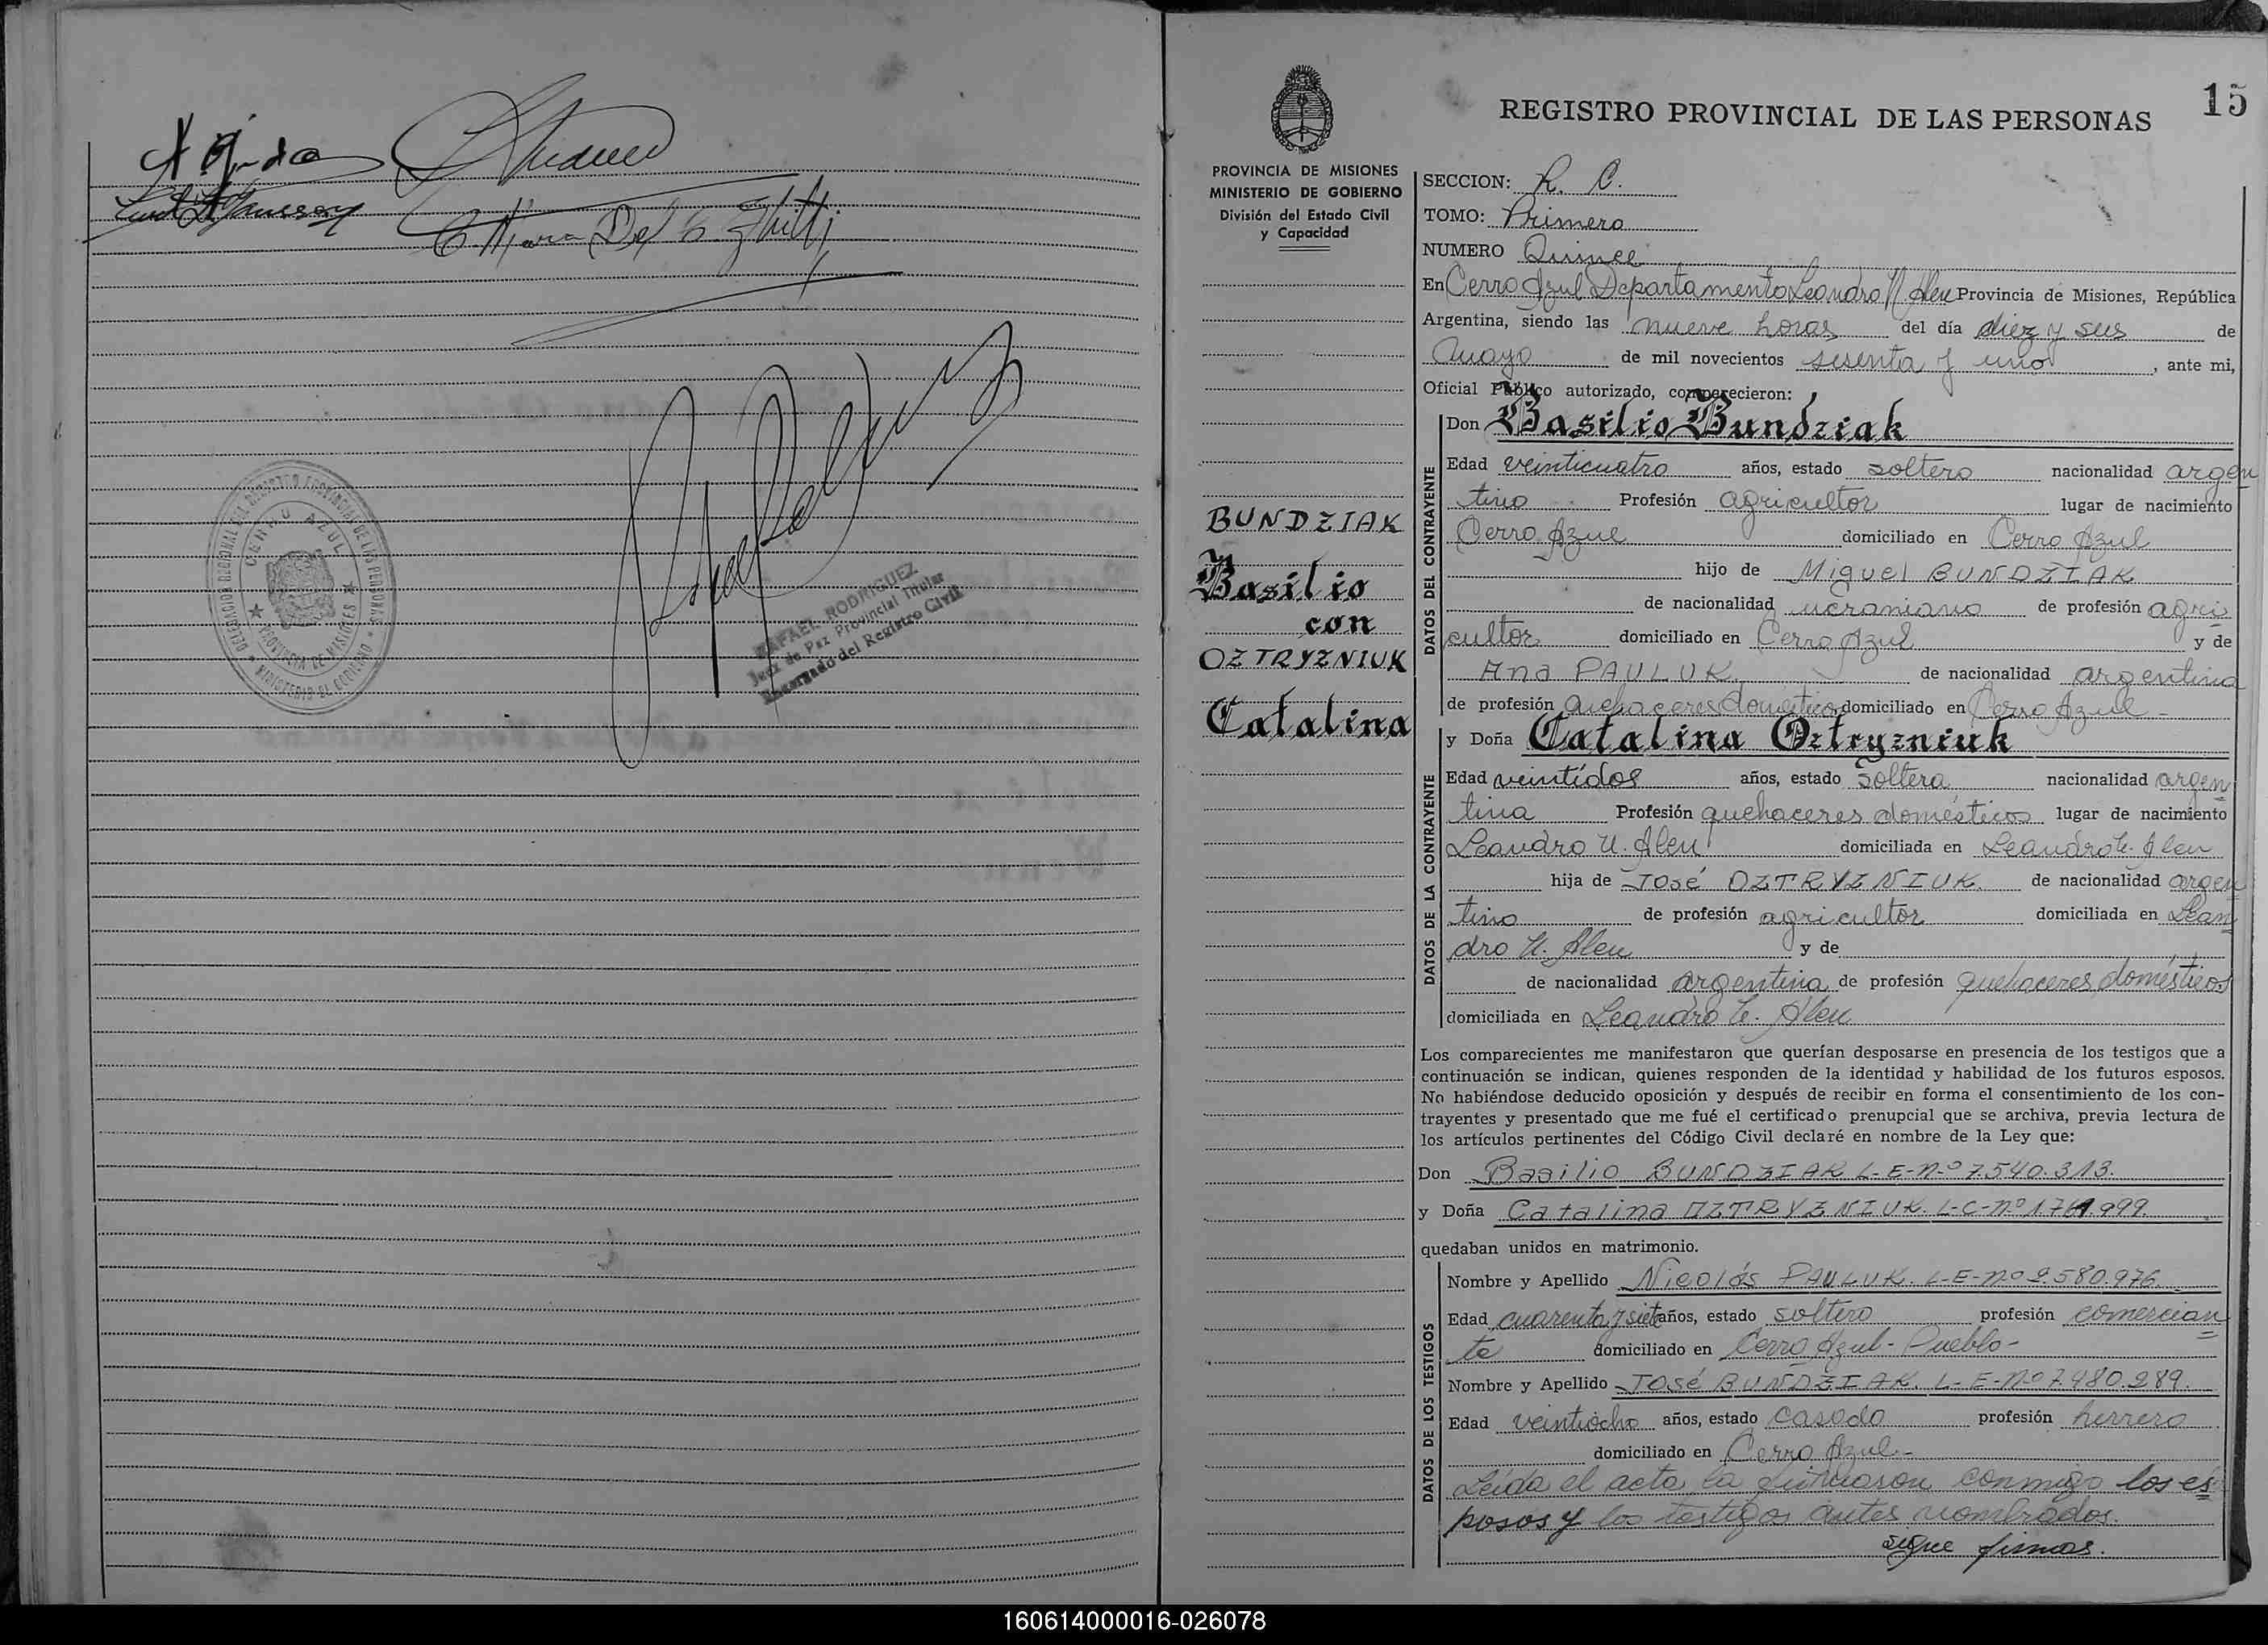 RAFAEL RODRIGUEZ
Juez de Paz Provincial Titular
Encargado del Registro Civil
CERRO AZUL
PROVINCIA DE MISIONES
15
REGISTRO PROVINCIAL DE LAS PERSONAS
PROVINCIA DE MISIONES
MINISTERIO DE GOBIERNO
División del Estado Civil
y Capacidad
BUNDZIAK
Basilio
con
OZTRYZNIUK
Catalina
SECCION: R. C.
TOMO: Primero
NUMERO Quince
En Cerro Azul Departamento Leandro N Alem Provincia de Misiones, República
Argentina, siendo las nueve horas del día diez y seis de
mayo de mil novecientos sesenta y uno, ante mi,
Oficial Público autorizado, comparecieron:
DATOS DEL CONTRAYENTE
Don Basilio Bundziak
Edad veinticuatro años, estado soltero nacionalidad argen
tino Profesión agricultor lugar de nacimiento
Cerro Azul domiciliado en Cerro Azul
hijo de Miguel BUNDZIAK
de nacionalidad ucraniano de profesión agri
cultor domiciliado en Cerro Azul y de
Ana PAULUK de nacionalidad argentina
de profesión quehaceres domésticos domiciliado en Cerro Azul -
DATOS DE LA CONTRAYENTE
y Doña Catalina Oztryzniuk
Edad veintidos años, estado soltera nacionalidad argen
tina Profesión quehaceres domésticos lugar de nacimiento
Leandro N. Alem domiciliada en Leandro N. Alem
hija de José OZTRYZNIUK. de nacionalidad argen
tino de profesión agricultor domiciliada en Lean
dro N. Alem y de
de nacionalidad argentina de profesión quehaceres domésticos
domiciliada en Leandro N. Alem
Los comparecientes me manifestaron que querían desposarse en presencia de los testigos que a
continuación se indican, quienes responden de la identidad y habilidad de los futuros esposos.
No habiéndose deducido oposición y después de recibir en forma el consentimiento de los con-
trayentes y presentado que me fué el certificado prenupcial que se archiva, previa lectura de
los artículos pertinentes del Código Civil declaré en nombre de la Ley que:
Don Basilio BUNDZIAK L-E-nº 7.540.313.
y Doña Catalina OZTRYZNIUK. L-C-nº 1.761.999.
quedaban unidos en matrimonio.
DATOS DE LOS TESTIGOS
Nombre y Apellido Nicolás PAULUK. L-E-nº 2.580.976.
Edad cuarenta y siete años, estado soltero profesión comercian
te domiciliado en Cerro Azul - Pueblo -
Nombre y Apellido José BUNDZIAK. L-E-nº 7.480.289.
Edad veintiocho años, estado casado profesión herrero
domiciliado en Cerro Azul.-
Leída el acta, la firmaron conmigo los es
posos y los testigos antes nombrados.
sigue firmas.
160614000016-026078